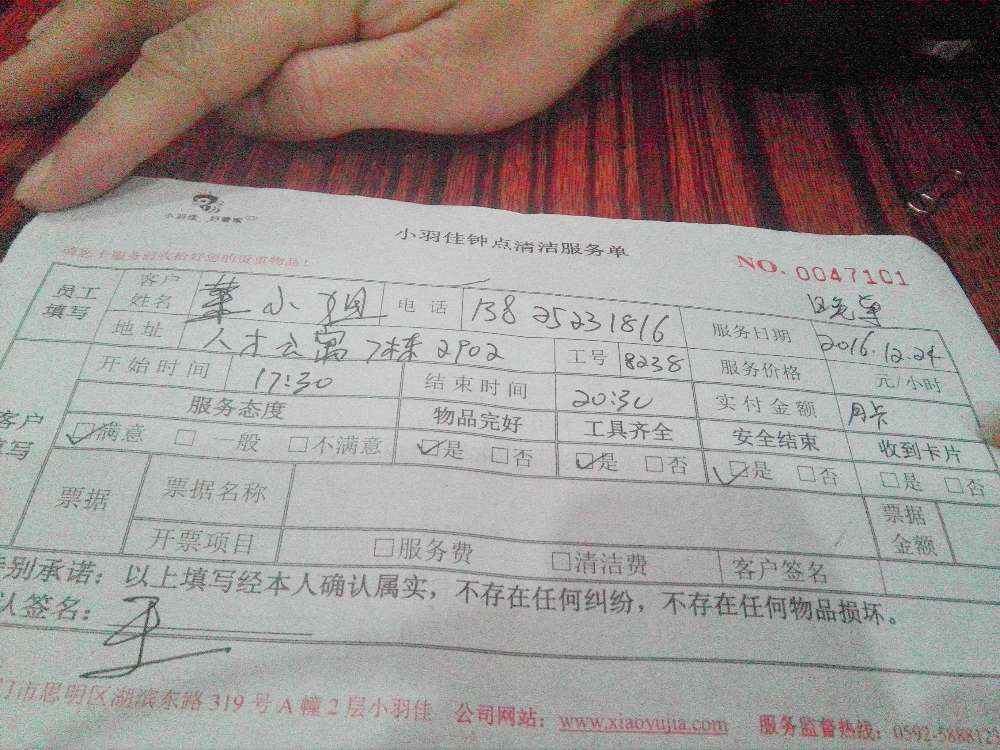 小羽佳 好管家
小羽佳钟点清洁服务单
NO. 0047101
员工填写 客户姓名 小姐 电话 13825231816 服务日期 2016.12.24
地址 人才公寓7栋2902 工号 8238 服务价格 元/小时
开始时间 17:30 结束时间 20:30 实付金额 月卡
客户填写 服务态度 物品完好 工具齐全 安全结束 收到卡片
☑满意 □一般 □不满意 ☑是 □否 ☑是 □否 ☑是 □否 □是 □否
票据 票据名称 票据金额
开票项目 □服务费 □清洁费 客户签名
特别承诺：以上填写经本人确认属实，不存在任何纠纷，不存在任何物品损坏。
认签名：
门市思明区湖滨东路319号A幢2层小羽佳 公司网站：www.xiaoyujia.com 服务监督热线：0592-5888125